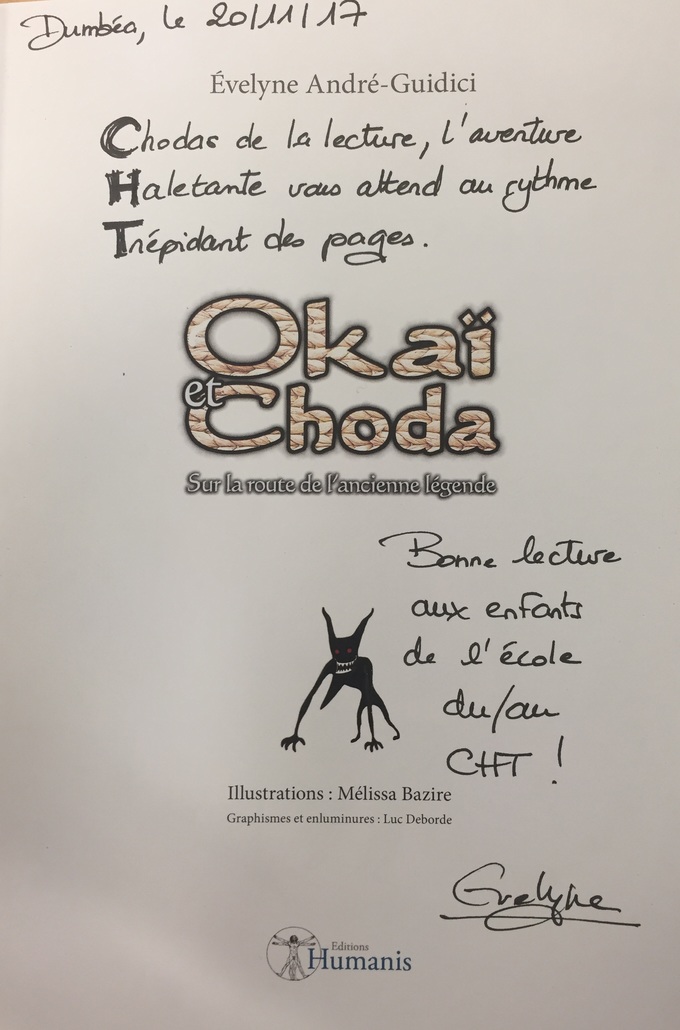 Dumbéa, le 20/11/17
Évelyne André-Guidici
Chodas de la lecture, l'aventure
Haletante vous attend au rythme
Trépidant des pages.
Okaï
et Choda
Sur la route de l'ancienne légende
Bonne lecture
aux enfants
de l'école
du/au
CHT !
Illustrations : Mélissa Bazire
Graphismes et enluminures : Luc Deborde
Evelyne
Editions
Humanis